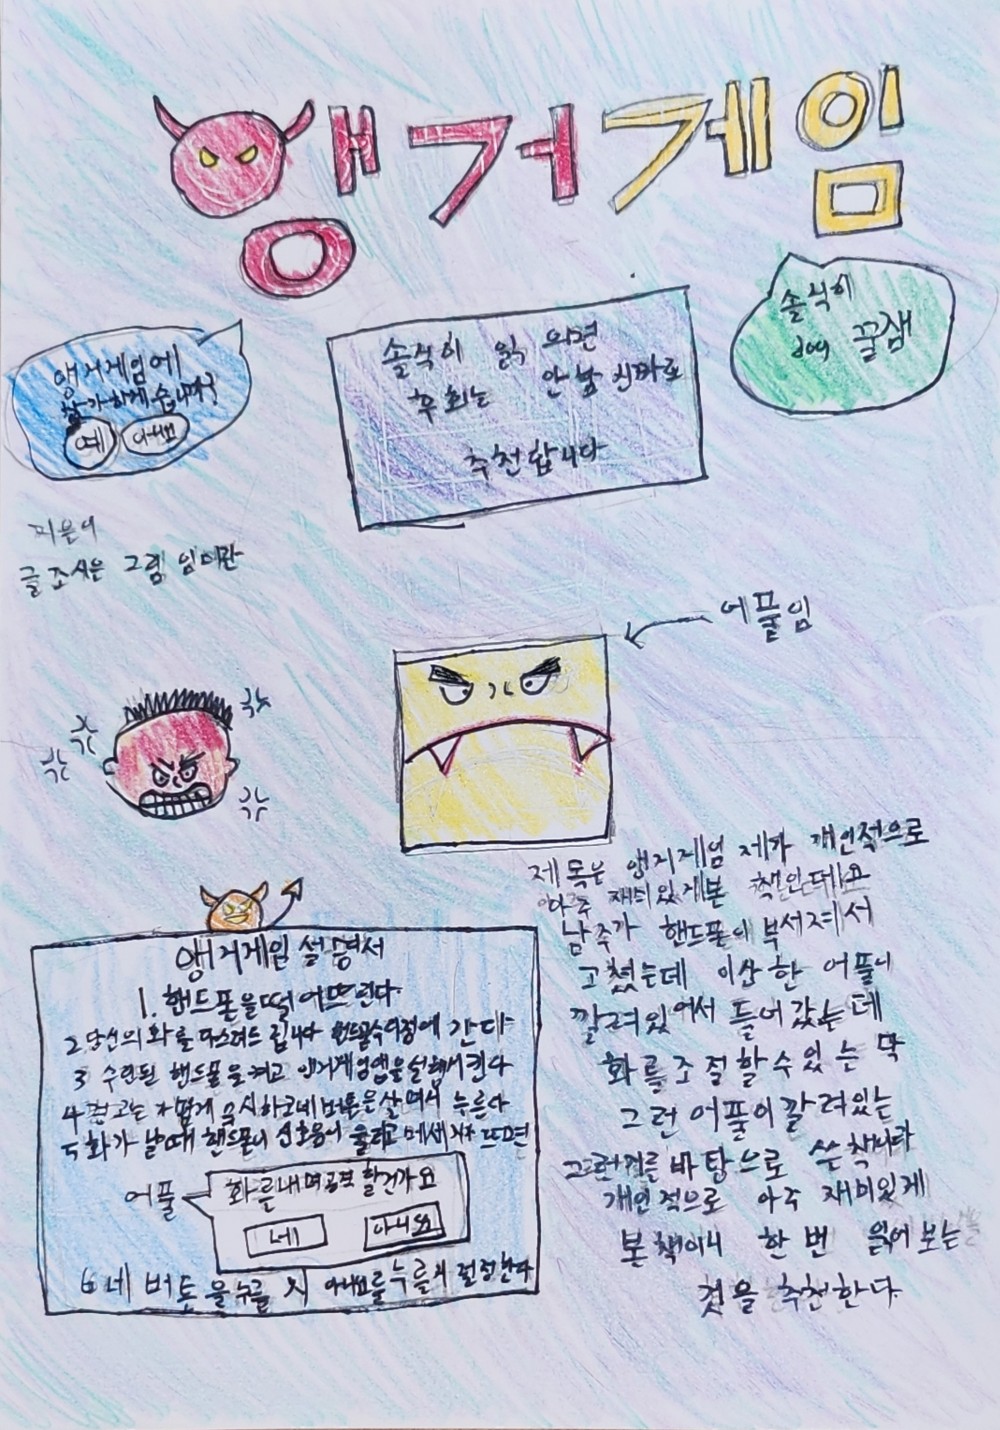 앵거게임
앵거게임에
참가하게습니까?
예 아니요
솔직히 읽 으면
후회는 안할 진짜로
추천합니다
솔직히
꿀잼
지은이
글 조시온 그림 임미란
어플임
제목은 앵거게임 제가 개인적으로
아주 재미있게본 책인데요
남주가 핸드폰이 부서져서
고쳤는데 이상한 어플이
깔려있어서 들어갔는데
화를조절할수있는 막
그런 어플이깔려있는
그런거를바탕으로 쓴책이다
개인적으로 아주 재미있게
본책이니 한번 읽어보는
것을 추천한다
앵거게임 설명서
1. 핸드폰을떨어뜨린다.
2 당신의화를 다스려드립니다 핸드폰수리점에 간다
3 수리된 핸드폰을켜고 앵거게임앱을실행시킨다
4 경고는 가볍게 무시하고네버튼은살며시 누른다
5 화가 날때 핸드폰이 신호음이 울리고메세지가 뜨면
어플
화를내며공격 할건가요
네 아니요
6 네 버튼을누를 지 아니요를누를지 결정한다